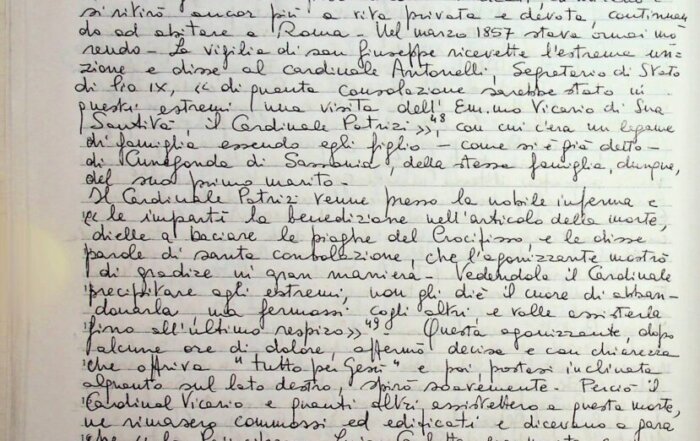 si ritirò ancor più a vita privata e devota, continuan
do ad abitare a Roma - Nel marzo 1857 stava ormai mo
rendo - La vigilia di san Giuseppe ricevette l'estrema un
zione e disse al cardinale Antonelli, Segretario di Stato
di Pio IX, « di quanta consolazione sarebbe stato in
questi estremi una visita dell' Em.mo Vicario di Sua
Santità, il Cardinale Patrizi »,48 con cui c'era un legame
di famiglia essendo egli figlio - come si è già detto -
di Cunegonda di Sassonia, della stessa famiglia, dunque,
del suo primo marito -
Il Cardinale Patrizi venne presso la nobile inferma e
« le impartì la benedizione nell'articolo della morte,
dielle a baciare le piaghe del Crocifisso, e le disse
parole di santa consolazione, che l'agonizzante mostrò
di gradire in gran maniera - Vedendola il Cardinale
precipitare agli estremi, non gli diè il cuore di abban-
donarla, ma fermossi cogli altri, e volle assisterla
fino all'ultimo respiro ».49 Questa agonizzante, dopo
alcune ore di dolore, affermò decisa e con chiarezza
che offriva "tutto per Gesù" e poi, postasi inclinata
alquanto sul lato destro, spirò soavemente - Perciò il
Cardinal Vicario e quanti altri assistettero a questa morte,
ne rimasero commossi ed edificati e dicevano a gara
che « la